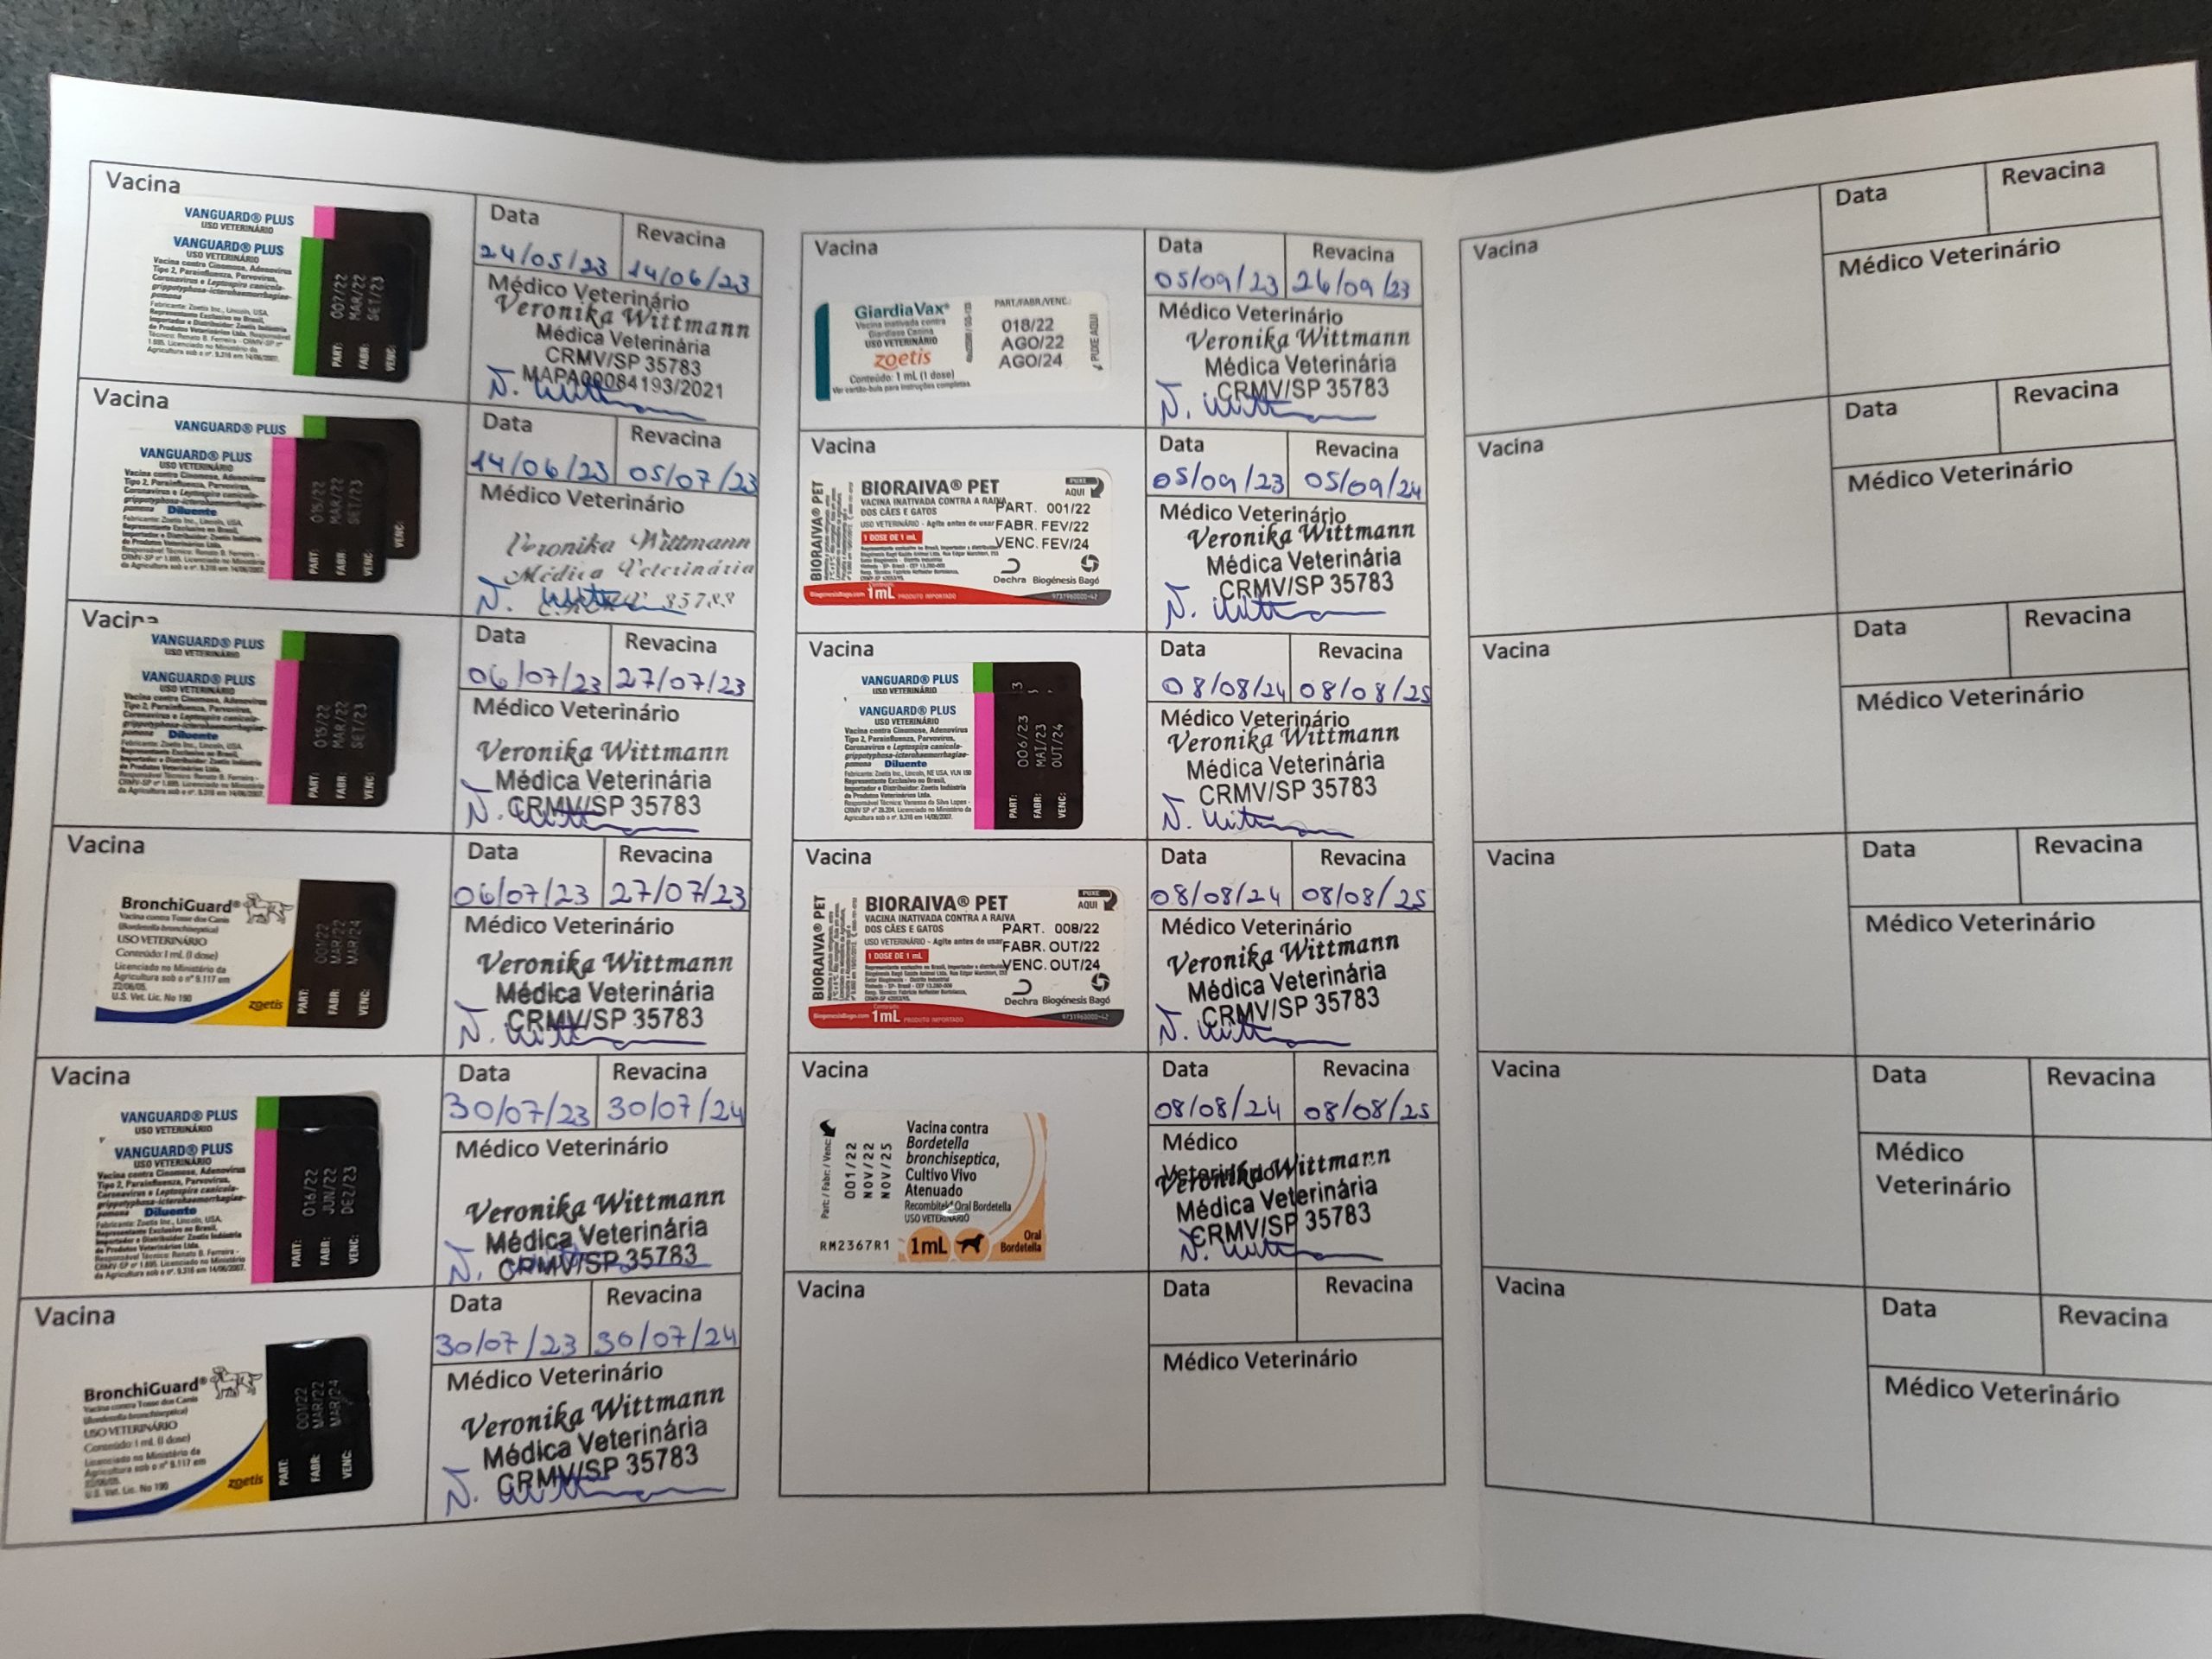 Vacina
VANGUARD® PLUS
USO VETERINÁRIO
VANGUARD® PLUS
USO VETERINÁRIO
Vacina contra Cinomose, Adenovirus
Tipo 2, Parainfluenza, Parvovirus,
Coronavirus e Leptospira canicola-
grippotyphosa-icterohaemorrhagiae-
pomona
Fabricante: Zoetis Inc., Lincoln, USA.
PART: 007/22
FABR: MAR/22
VENC: SET/23
Data
24/05/23
Revacina
14/06/23
Médico Veterinário
Veronika Wittmann
Médica Veterinária
CRMV/SP 35783
MAPA00084193/2021
Vacina
VANGUARD® PLUS
VANGUARD® PLUS
USO VETERINÁRIO
Vacina contra Cinomose, Adenovirus
Tipo 2, Parainfluenza, Parvovirus,
Coronavirus e Leptospira canicola-
grippotyphosa-icterohaemorrhagiae-
pomona Diluente
PART: 015/22
FABR: MAR/22
VENC: SET/23
VENC:
Data
14/06/23
Revacina
05/07/23
Médico Veterinário
Veronika Wittmann
Médica Veterinária
35783
VANGUARD® PLUS
USO VETERINÁRIO
VANGUARD® PLUS
USO VETERINÁRIO
Vacina contra Cinomose, Adenovirus
Tipo 2, Parainfluenza, Parvovirus,
Coronavirus e Leptospira canicola-
grippotyphosa-icterohaemorrhagiae-
pomona Diluente
PART: 015/22
FABR: MAR/22
VENC: SET/23
Data
06/07/23
Revacina
27/07/23
Médico Veterinário
Veronika Wittmann
Médica Veterinária
CRMV/SP 35783
Vacina
BronchiGuard®
Vacina contra Tosse dos Canis
(Bordetella bronchiseptica)
USO VETERINÁRIO
Conteúdo: 1 mL (1 dose)
Licenciado no Ministério da
Agricultura sob o nº 9.117 em
22/06/05.
U.S. Vet. Lic. No 190
zoetis
PART: 001/22
FABR: MAR/22
VENC: MAR/24
Data
06/07/23
Revacina
27/07/23
Médico Veterinário
Veronika Wittmann
Médica Veterinária
CRMV/SP 35783
Vacina
VANGUARD® PLUS
USO VETERINÁRIO
VANGUARD® PLUS
USO VETERINÁRIO
Vacina contra Cinomose, Adenovirus
Tipo 2, Parainfluenza, Parvovirus,
Coronavirus e Leptospira canicola-
grippotyphosa-icterohaemorrhagiae-
pomona Diluente
PART: 016/22
FABR: JUN/22
VENC: DEZ/23
Data
30/07/23
Revacina
30/07/24
Médico Veterinário
Veronika Wittmann
Médica Veterinária
CRMV/SP 35783
Vacina
BronchiGuard®
Vacina contra Tosse dos Canis
(Bordetella bronchiseptica)
USO VETERINÁRIO
Conteúdo: 1 mL (1 dose)
Licenciado no Ministério da
Agricultura sob o nº 9.117 em
22/06/05.
U.S. Vet. Lic. No 190
zoetis
PART: 001/22
FABR: MAR/22
VENC: MAR/24
Data
30/07/23
Revacina
30/07/24
Médico Veterinário
Veronika Wittmann
Médica Veterinária
CRMV/SP 35783
Vacina
GiardiaVax®
Vacina inativada contra
Giardiase Canina
USO VETERINÁRIO
zoetis
Conteúdo: 1 mL (1 dose)
Ver cartão-bula para instruções completas.
PART./FABR./VENC.:
018/22
AGO/22
AGO/24
PUXE AQUI
Data
05/09/23
Revacina
26/09/23
Médico Veterinário
Veronika Wittmann
Médica Veterinária
CRMV/SP 35783
Vacina
BIORAIVA® PET
BIORAIVA® PET
VACINA INATIVADA CONTRA A RAIVA
DOS CÃES E GATOS
USO VETERINÁRIO - Agite antes de usar
1 DOSE DE 1 mL
PUXE
AQUI
PART. 001/22
FABR. FEV/22
VENC. FEV/24
Dechra Biogénesis Bagó
1mL PRODUTO IMPORTADO
Data
05/09/23
Revacina
05/09/24
Médico Veterinário
Veronika Wittmann
Médica Veterinária
CRMV/SP 35783
Vacina
VANGUARD® PLUS
USO VETERINÁRIO
VANGUARD® PLUS
USO VETERINÁRIO
Vacina contra Cinomose, Adenovirus
Tipo 2, Parainfluenza, Parvovirus,
Coronavirus e Leptospira canicola-
grippotyphosa-icterohaemorrhagiae-
pomona Diluente
PART: 006/23
FABR: MAI/23
VENC: OUT/24
Data
08/08/24
Revacina
08/08/25
Médico Veterinário
Veronika Wittmann
Médica Veterinária
CRMV/SP 35783
Vacina
BIORAIVA® PET
BIORAIVA® PET
VACINA INATIVADA CONTRA A RAIVA
DOS CÃES E GATOS
USO VETERINÁRIO - Agite antes de usar
1 DOSE DE 1 mL
PUXE
AQUI
PART. 008/22
FABR. OUT/22
VENC. OUT/24
Dechra Biogénesis Bagó
1mL PRODUTO IMPORTADO
Data
08/08/24
Revacina
08/08/25
Médico Veterinário
Veronika Wittmann
Médica Veterinária
CRMV/SP 35783
Vacina
Part.: / Fabr.: / Venc.:
001/22
NOV/22
NOV/25
RM2367R1
Vacina contra
Bordetella
bronchiseptica,
Cultivo Vivo
Atenuado
Recombitek® Oral Bordetella
USO VETERINÁRIO
1mL
Oral
Bordetella
Data
08/08/24
Revacina
08/08/25
Médico
Veterinário
Veronika Wittmann
Médica Veterinária
CRMV/SP 35783
Vacina
Data
Revacina
Médico Veterinário
Vacina
Data
Revacina
Médico Veterinário
Vacina
Data
Revacina
Médico Veterinário
Vacina
Data
Revacina
Médico Veterinário
Vacina
Data
Revacina
Médico Veterinário
Vacina
Data
Revacina
Médico
Veterinário
Vacina
Data
Revacina
Médico Veterinário